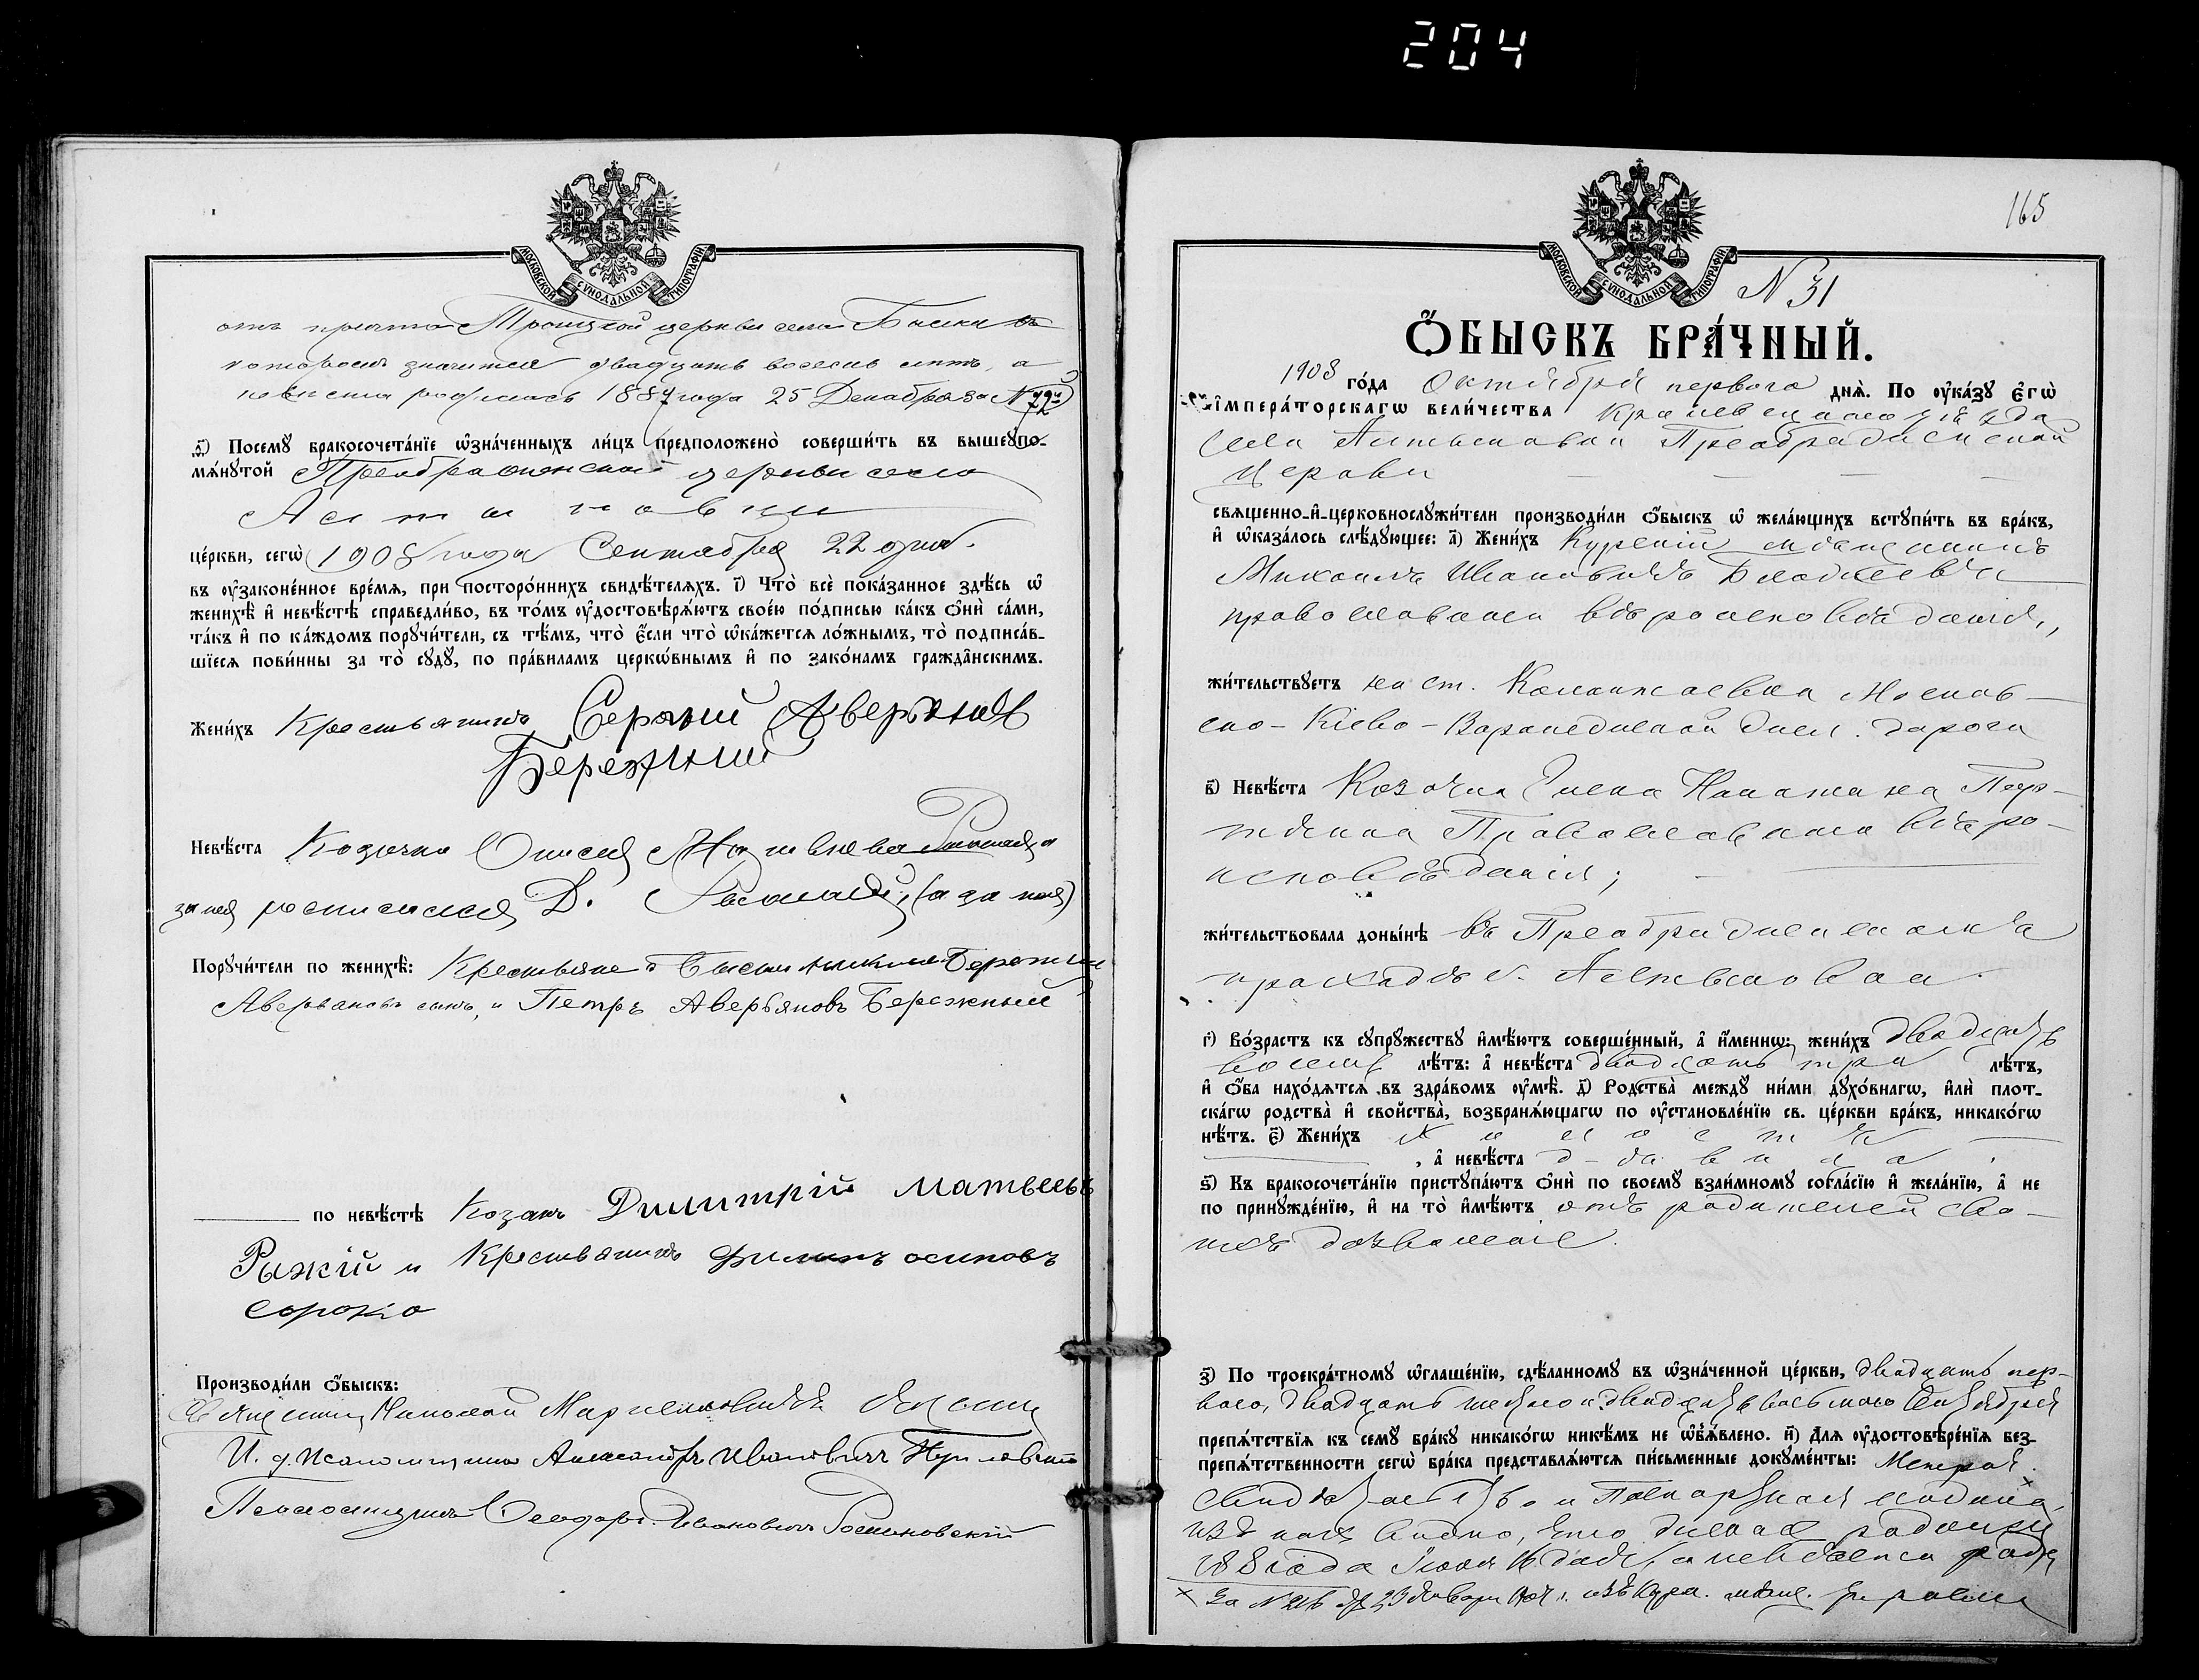 204
МОСКОВСКОЙ СѴНОДАЛЬНОЙ ТИПОГРАФІИ.
отъ причта Троицкой церкви села Быки въ
которомъ значится двадцать восемь лѣтъ, а
невѣста родилась 1887 года 25 Декабря за № 72
ѳ҃) Посемꙋ бракосочета́нїе ѡ҆зна́ченныхъ ли́цъ предположено̀ соверши́ть въ вышеꙋпо-
мѧ́нꙋтой Преображенской церкви села
Алтыновки
це́ркви, сегѡ̀ 1908 года Сентября 22 дня.
въ ᲂу҆законе́нное вре́мѧ, при посторо́ннихъ свидѣ́телѧхъ. і҃) Что̀ всѐ пока́занное здѣ́сь ѡ҆
женихѣ̀ и҆ невѣ́стѣ справедли́во, въ то́мъ ᲂу҆достовѣрѧ́ютъ свое́ю по́дписью ка́къ ѻ҆нѝ са́ми,
та́къ и҆ по ка́ждомъ порꙋчи́тели, съ тѣ́мъ, что̀ є҆́сли что̀ ѡ҆ка́жетсѧ ло́жнымъ, то̀ подписа́в-
шїесѧ пови́нны за то̀ сꙋдꙋ̀, по пра́виламъ церко́внымъ и҆ по зако́намъ гражда́нскимъ.
Жени́хъ Крестьянинъ Сергѣй Аверьяновъ
Бережный
Невѣ́ста Козачка Матвѣева
за нея росписался Д.
Порꙋчи́тели по женихѣ̀: Крестьяне: Бережный
Аверьяновъ сынъ, и Петръ Аверьяновъ Бережный
по невѣ́стѣ Козакъ Димитрій Матвеевъ
Рыжій и Крестьянинъ Филипъ осиповъ
сорока
Производи́ли ѻ҆́быскъ:
Священникъ Николай
И. д. Псаломщика Александръ Ивановичъ
Псаломщикъ Ѳеодоръ Ивановичъ
165
МОСКОВСКОЙ СѴНОДАЛЬНОЙ ТИПОГРАФІИ.
№ 31
Ѻ҆́БЫСКЪ БРА́ЧНЫЙ.
1908 го́да Октября перваго днѧ̀. По ᲂу҆ка́зꙋ є҆гѡ̀
і҆мпера́торскагѡ вели́чества Кролевецкаго уѣзда
села Алтыновки Преображенской
церкви
свѧщенно-и҆-церковнослꙋжи́тели производи́ли ѻ҆́быскъ ѡ҆ жела́ющихъ встꙋпи́ть въ бра́къ,
и҆ ѡ҆каза́лось слѣ́дꙋющее: а҃) Жени́хъ Курскій мѣщанинъ
Михаилъ Ивановичъ
православнаго вѣроисповѣданія,
жи́тельствꙋетъ на ст. Московско-
Кіево-Воронежской жел. дороги
в҃) Невѣ́ста Козачка Елена
Православнаго вѣро-
исповѣданія;
жи́тельствовала доны́нѣ въ Преображенскомъ
приходѣ с. Алтыновки.
г҃) Во́зрастъ къ сꙋпрꙋ́жествꙋ и҆мѣ́ютъ соверше́нный, а҆ и҆́меннѡ: жени́хъ двадцать
восемь лѣ́тъ: а҆ невѣ́ста двадцать три лѣ́тъ,
и҆ ѻ҆́ба нахо́дѧтсѧ въ здра́вомъ ᲂу҆мѣ̀. д҃) Родства̀ междꙋ̀ ни́ми дꙋхо́внагѡ, и҆лѝ плот-
ска́гѡ родства̀ и҆ сво́йства, возбранѧ́ющагѡ по ᲂу҆становле́нїю св. це́ркви бра́къ, никако́гѡ
нѣ́тъ. є҃) Жени́хъ холостъ
, а҆ невѣ́ста дѣвица.
ѕ҃) Къ бракосочета́нїю пристꙋпа́ютъ ѻ҆нѝ по своемꙋ̀ взаи́мномꙋ согла́сїю и҆ жела́нїю, а҆ не
по принꙋжде́нїю, и҆ на то̀ и҆мѣ́ютъ отъ родителей сво-
ихъ дозволеніе.
з҃) По троекра́тномꙋ ѡ҆глаше́нїю, сдѣ́ланномꙋ въ ѡ҆зна́ченной це́ркви, двадцать пер-
ваго, двадцать шестого и двадцать восьмого Сентября
препѧ́тствїѧ къ семꙋ̀ бра́кꙋ никако́гѡ никѣ́мъ не ѡ҆б̾ѧ́влено. и҃) Длѧ ᲂу҆достовѣре́нїѧ без-
препѧ́тственности сегѡ̀ бра́ка представлѧ́ютсѧ пи́сьменные докꙋме́нты: Метрич.
свидѣтельство и Паспортная книжка,
изъ коихъ видно, что женихъ родился
года Іюля 16 дня, а невѣста